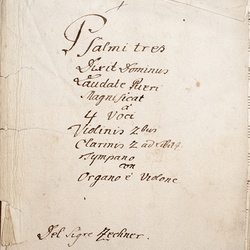 Psalmi tres
Dixit Dominus
Laudate Pueri
Magnificat
à
4 Voci
Violinis 2bus
Clarinis 2 ad libit:
Tympano
con
Organo è Violone
Del Sigre Zechner.